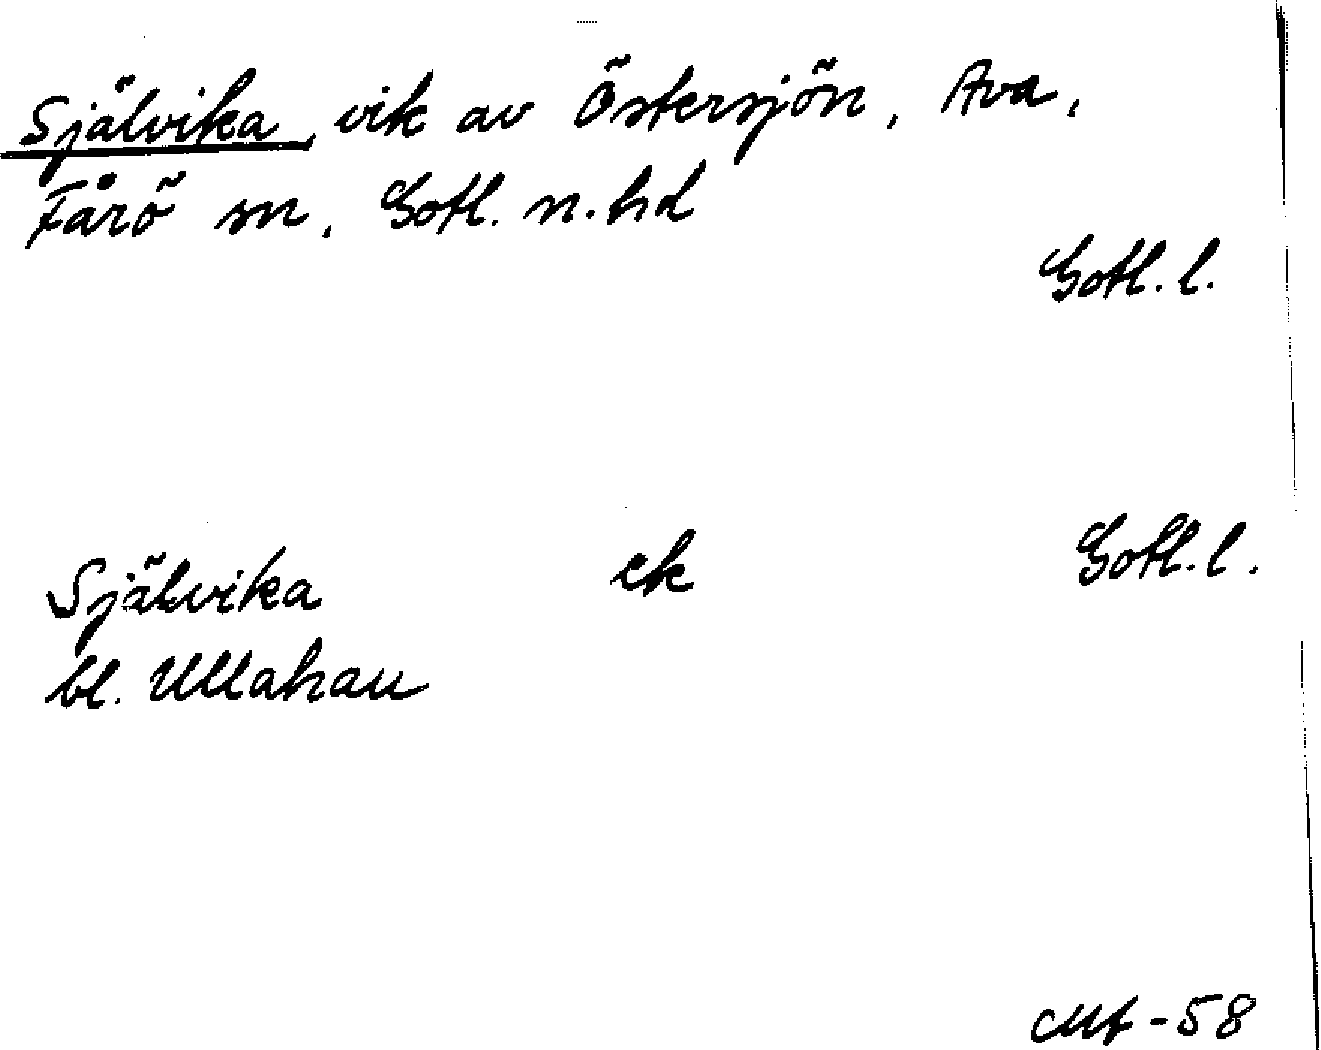 Självika, vik av Östersjön, Ava,
Fårö sn, Gotl. n. hd
Gotl. l.
Självika ek Gotl. l.
bl. Ullahau
-58